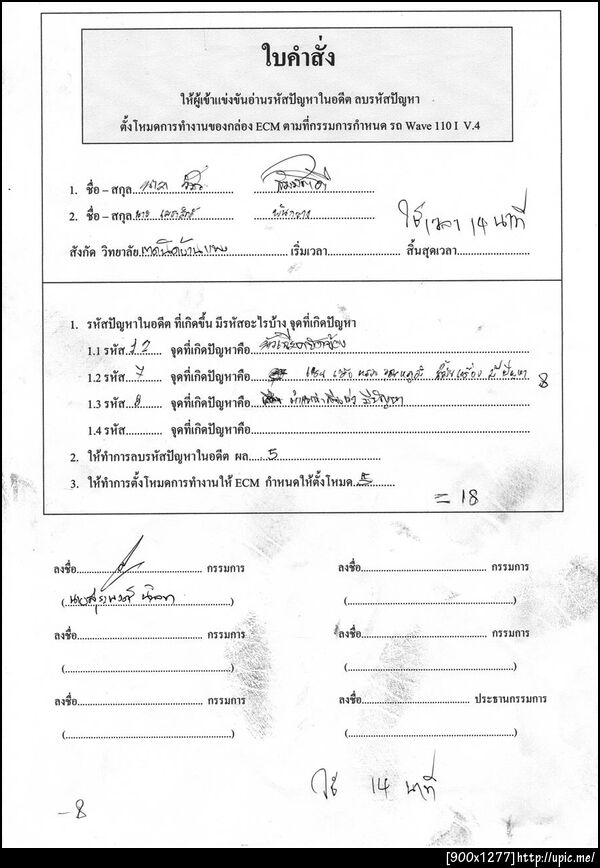 ใบคำสั่ง
ให้ผู้เข้าแข่งขันอ่านรหัสปัญหาในอดีต ลบรหัสปัญหา
ตั้งโหมดการทำงานของกล่อง ECM ตามที่กรรมการกำหนด รถ Wave 110 I V.4
1. ชื่อ – สกุล
2. ชื่อ – สกุล นาย
ใช้เวลา 14 นาที
สังกัด วิทยาลัย เทคนิคบ้านแพง เริ่มเวลา สิ้นสุดเวลา
1. รหัสปัญหาในอดีต ที่เกิดขึ้น มีรหัสอะไรบ้าง จุดที่เกิดปัญหา
1.1 รหัส 12 จุดที่เกิดปัญหาคือ
1.2 รหัส 7 จุดที่เกิดปัญหาคือ มีปัญหา 8
1.3 รหัส 8 จุดที่เกิดปัญหาคือ มีปัญหา
1.4 รหัส จุดที่เกิดปัญหาคือ
2. ให้ทำการลบรหัสปัญหาในอดีต ผล 5
3. ให้ทำการตั้งโหมดการทำงานให้ ECM กำหนดให้ตั้งโหมด 5
= 18
ลงชื่อ กรรมการ ลงชื่อ กรรมการ
ลงชื่อ กรรมการ ลงชื่อ กรรมการ
ลงชื่อ กรรมการ ลงชื่อ ประธานกรรมการ
ใช้ 14 นาที
-8
[900x1277]http://upic.me/